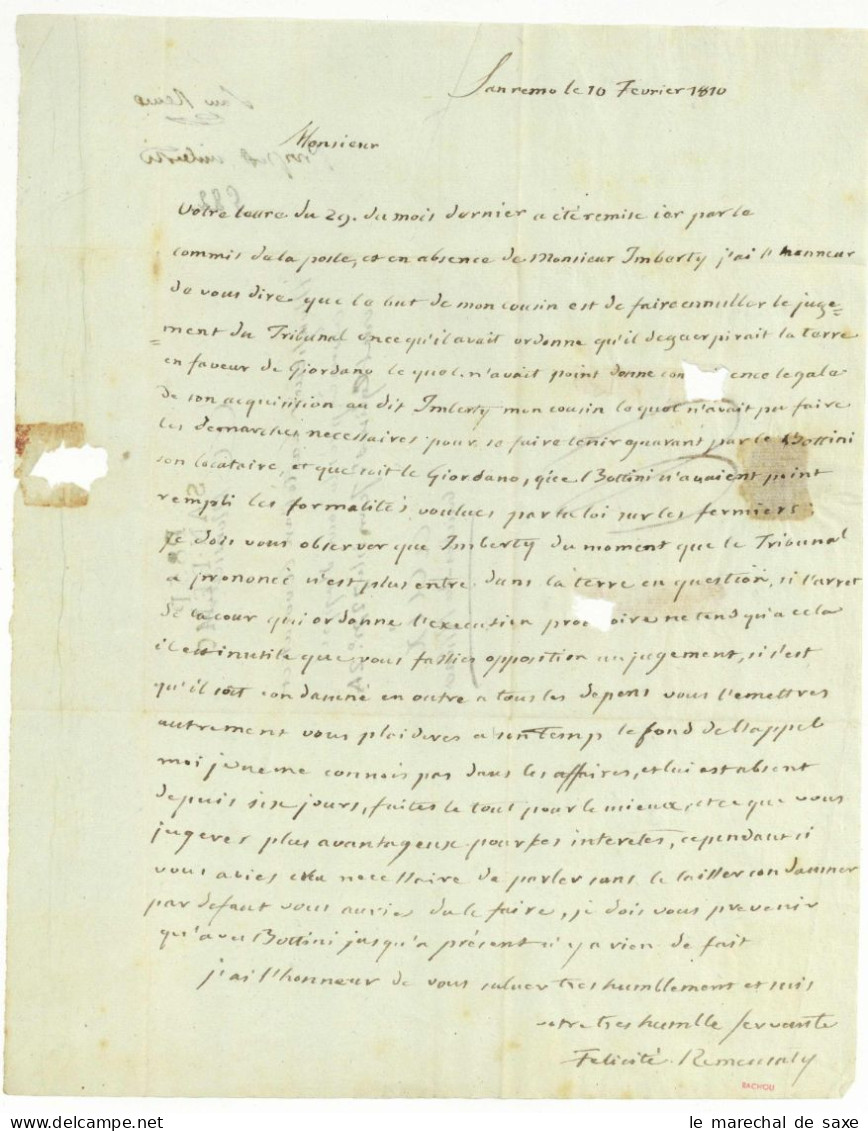 Sanremo le 10 Fevrier 1810
Monsieur
Votre lettre du 29. du mois dernier a été remise ier par le
commis de la poste, et en absence de Monsieur Imberty j'ai l'honneur
de vous dire que le but de mon cousin est de faire annuller le juge=
=ment du Tribunal en ce qu'il avait ordonné qu'il deguerpirait la terre
en faveur de Giordano le quel n'avait point donné con ence legale
de son acquisition au dit Imberty mon cousin le quel n'avait pu faire
les demarches necessaires pour se faire tenir guarant par le Bottini
son locataire, et que soit le Giordano, que Bottini n'avaient point
rempli les formalités voulues par la loi sur les fermiers;
je dois vous observer que Imberty du moment que le Tribunal
a prononcé n'est plus entre dans la terre en question, si l'arret
de la cour qui ordonne l'execution pro oire ne tend qu'a cela
il est inutile que vous fassies opposition au jugement, si s'est
qu'il soit condamné en outre a tous les depens vous l'emettres
autrement vous plaideres a son temp le fond de l'appel
moi je ne me connois pas dans les affaires, et lui est absent
depuis six jours, faites le tout pour le mieux, et ce que vous
jugeres plus avantageux pour ses interetes, cependant si
vous avies cru necessaire de parler sans le laisser condamner
par defaut vous auries du le faire, je dois vous prevenir
qu'avec Bottini jusqu'a présent il y a rien de fait
j'ai l'honneur de vous saluer tres humblement et suis
votre tres humble servante
Felicité
BACHOLI
le marechal de saxe